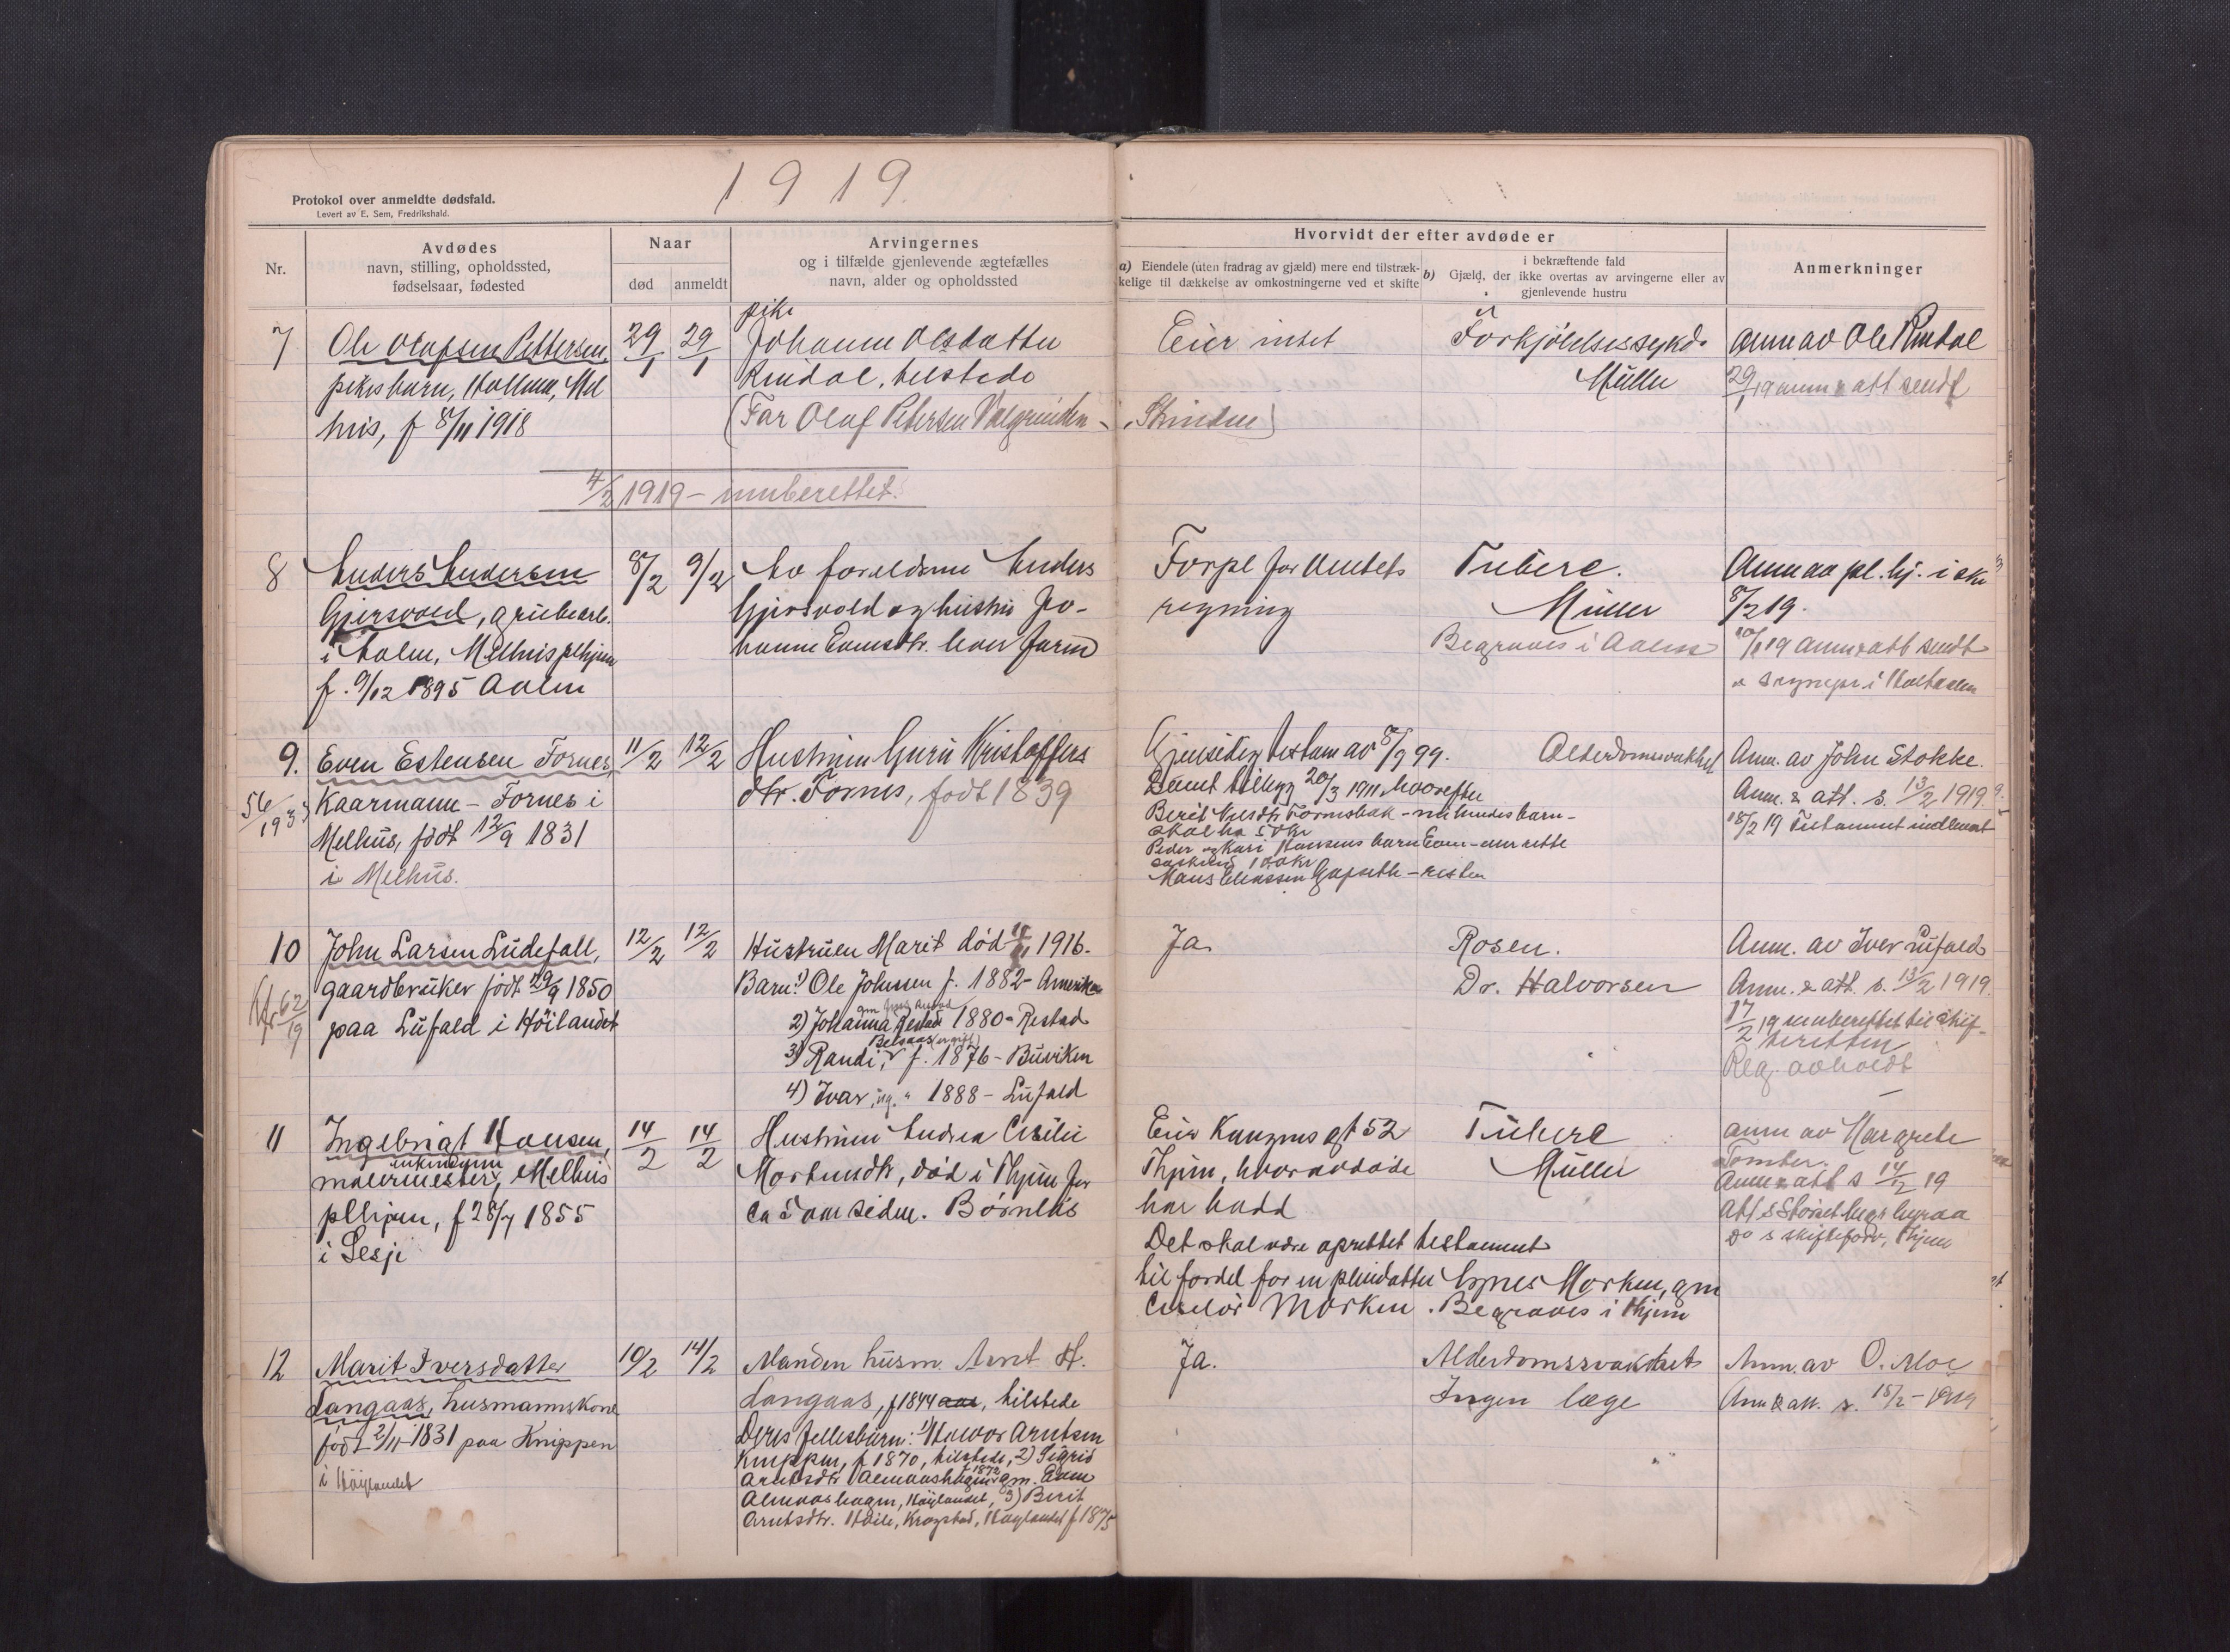 1919.
Protokol over anmeldte dødsfald.
Levert av E. Sem, Fredrikshald.
Nr.
Avdødes
navn, stilling, opholdssted,
fødselsaar, fødested
Naar
død
anmeldt
Arvingernes
og i tilfælde gjenlevende ægtefælles
navn, alder og opholdssted
Hvorvidt der efter avdøde er
a) Eiendele (uten fradrag av gjæld) mere end tilstræk-
kelige til dækkelse av omkostningerne ved et skifte
b) i bekræftende fald
Gjæld, der ikke overtas av arvingerne eller av
gjenlevende hustru
Anmerkninger
7
Ole Olafsen Pettersen,
pikebarn, Mel
hus, f 8/11 1918
29/1
29/1
pike
Johanne Olsdatter
Rindal, tilstede
(Far Olaf Petersen
Eier intet
Forkjölelsessykd.
Müller
Anm av Ole Rindal
29/1 19 anm & att sendt
4/2 1919 - innberettet.
8
Anders Andersen
Gjersvold, grubearb.
i Aalen, Melhus plhjem
f. 9/12 1895 Aalen
8/2
9/2
Av forældrene Anders
Gjersvold og hustru Jo-
hanne Evensdtr. lever
Forpl for Amtets
regning
Tuberc.
Müller
Begraves i Aalen
Anm av pl.hj. i skr
8/2 19.
10/2 19 anm & att sendt
sognepr i Holtaalen
9.
56/1933
Even Estensen Fornes,
Kaarmann - Fornes i
Melhus, födt 12/9 1831
i Melhus.
11/2
12/2
Hustruen Guru Kristoffers
dtr. Fornes, født 1839
Gjensidig testam av 8/9 99.
Samt tillegg 20/3 1911 hvorefter
Berit Nilsdtr Fornesbak - hendes barn -
skal ha 50 kr
Peder og Kari Hansens barn Even
100 kr
Gapseth - resten
Alderdomssvakhet
Anm. av John Stokke.
Anm. & att. s. 13/2 1919.
18/2 19 Testament indlevert
10
62/19
John Larsen Ludefall,
gaardbruker födt 29/9 1850
paa Lufald i Höilandet
12/2
12/2
Hustruen Marit död 1916.
Barn: 1) Ole Johnsen f. 1882 - Amerika
2) Johanna Restad 1880 - Restad
Belsaas (ugift)
3) Randi, f. 1876 - Buviken
4) Ivar, ug. " 1888 - Lufald
Ja.
Rosen.
Dr. Halvorsen
Anm. av Iver Lufald
Anm. & att. s. 13/2 1919.
17/2 19 innberettet til skif-
teretten
Reg. avholdt
11
Ingebrigt Hansen,
enkemann
malermester, Melhus
plhjem, f 28/7 1855
i Lesje
14/2
14/2
Hustruen Andrea Cecilie
Mortensdtr, död i Thjem for
ca 2 aar siden. Børnløs
Eier Kongens gt 52
Thjem, hvor avdøde
har bodd
Det skal være oprettet testament
til fordel for en pleiedatter Agnes Morken, gm
Ciselör Morken. Begraves i Thjem
Tuberc
Müller
anm av Margrete
Tomter.
Anm & att s 14/2 19
Att s Störset begr byraa
Do s skifteforv, Thjem
12
Marit Iversdatter
Langaas, husmannskone
født 2/11 1831 paa Knippen
i Höylandet
10/2
14/2
Manden husm. Arnt H.
Langaas, f 1844, tilstede
Deres fellesbarn: 1) Halvor Arntsen
Knippen, f 1870, tilstede, 2) Sigrid
Arntsdtr Almaashagen f 1872 gm.
Almaashagen, Höylandet, 3) Berit
Arntsdtr. Krogstad, Höylandet f 1875
Ja.
Alderdomssvakhet
Ingen læge
Anm. av O. Moe
Anm & att. s. 15/2 - 1919